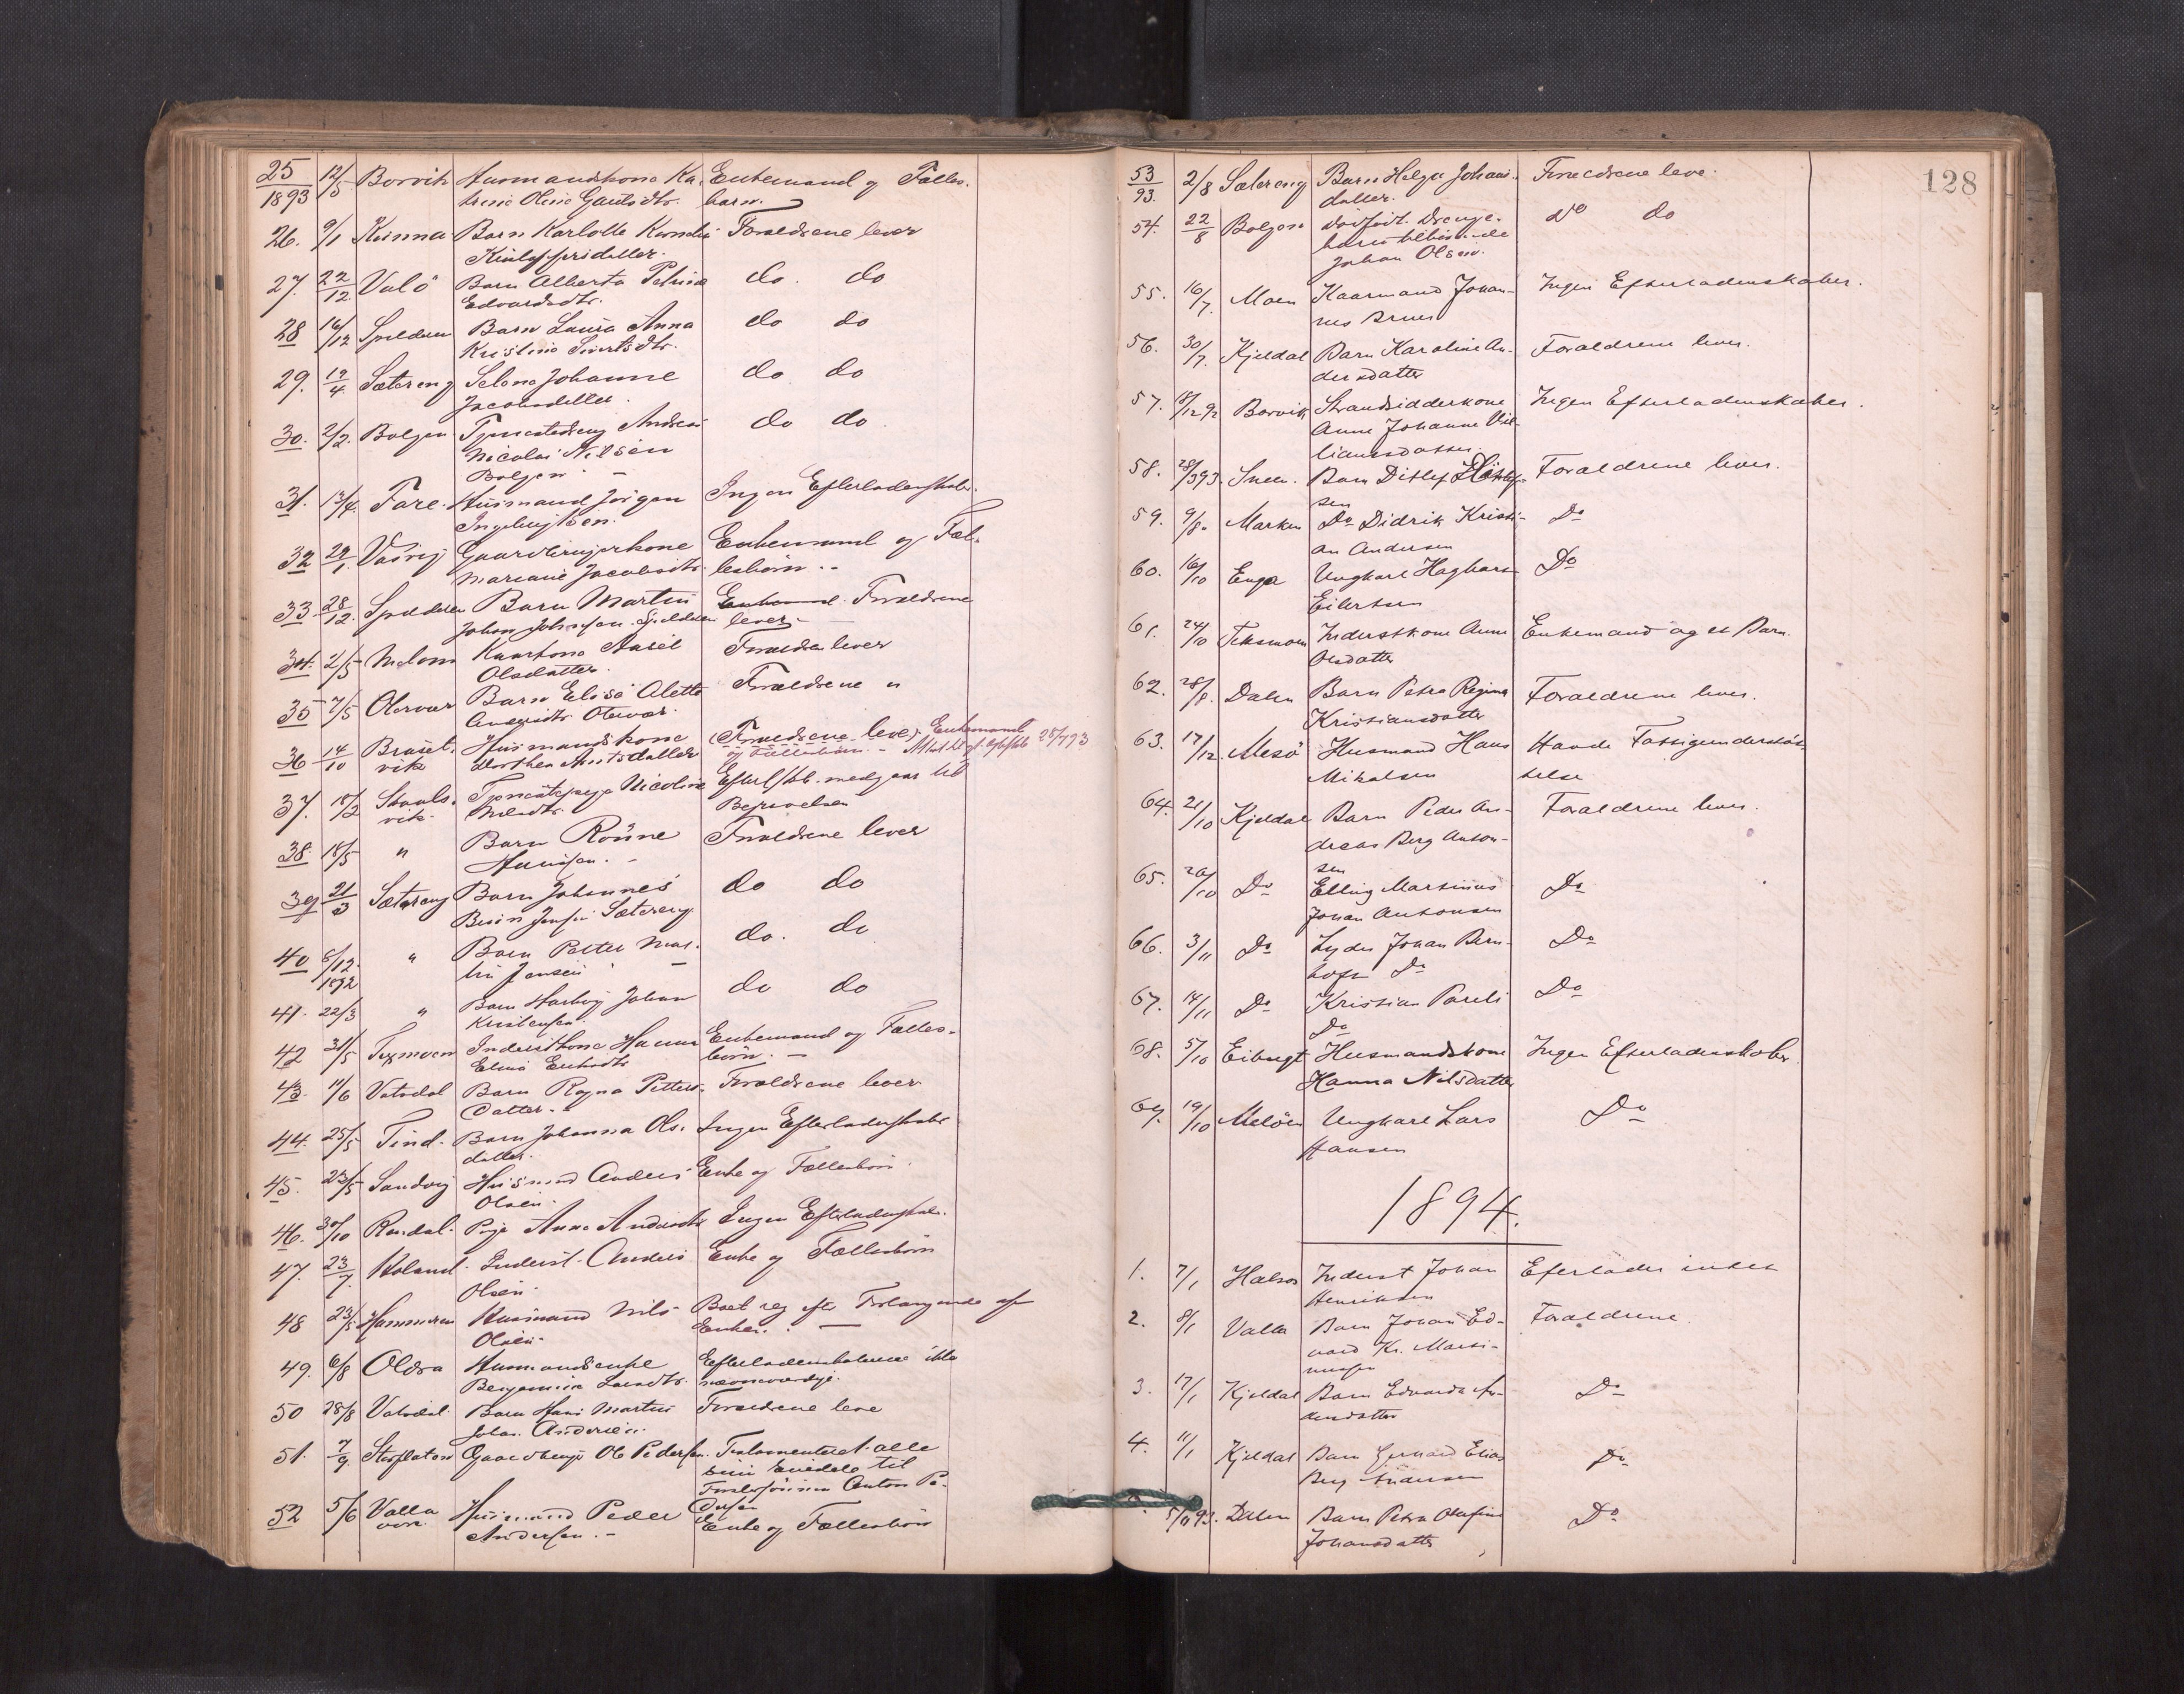 25/1893 12/5 Borvik Husmandskone Ka- Enkemand og Fælles-
trine Oline Gautsdtr. barn.
26. 9/1 Kunna Barn Karlotte Forældrene lever
27. 22/12 Valö Barn Alberta Petrine do. do
Edvardsdtr.
28 16/12 Spildren Barn Laura Anna do do
Kristine Sivertsdtr.
29. 19/4 Sætereng Selene Johanne do do
Jacobsdatter.
30. 2/2. Bolgen Tjenestedreng Andreas do do
Nicolai Nilsen
Bolgen
31. 13/4. Fore. Husmand Jörgen Ingen Efterladenskaber.
Ingebrigtsen.
32 29/1. Gaardbrugerkone Enkemand og Fæl-
Mariane Jacobsdtr. lesbörn.
33 28/12. Spildren Barn Martin Enkemand Forældrene
Johan Johnsen. Spildren lever
34. 2/5 Meløen Aasel Forældre lever
Olsdatter.
35 7/5 Otervær Barn Elise Alette Forældrene "
Otervær.
36 14/10 Braset- Husmandskone (Forældrene leve) Enkemand
vik Dorthea og Fællesbörn. 28/7 93
37. 18/2 Stavls- Tjenestepige Nicoline Efterl/skb. medgaar til
vik Nilsdtr. Begravelsen
38. 18/5 " Barn Forældrene lever
39 21/3 Sætereng Barn Johannes do do
Sætereng
40 8/12. " Barn Petter Mar- do. do
1892 tin Jensen
41. 22/3 " Barn Hartvig Johan do do
Kristensen
42 31/5 Texmoen Inderstkone Hanna Enkemand og Fælles-
Elina börn.
43. 11/6 Vatsdal Barn Ragna Petters- Forældrene lever
datter.
44. 25/5 Tind. Barn Johanna Ols- Ingen Efterladenskaber
datter.
45. 23/5 Sandvig Husmand Anders Enke og Fællesbörn
Olsen
46. 30/10 Rendal. Pige Anna Andersdtr Ingen Efterladenskab.
47. 23/7. Inderst Anders Enke og Fællesbörn
Olsen
48 23/5 Hammeren Husmand Nils Boet reg efter Forlangende af
Olsen Enken.
49. 6/8 Oldra Husmandsenke Efterladenskaberne ikke
Benjamine Larsdtr. nævneværdige.
50 28/8 Vatsdal. Barn Hans Martin Forældrene leve
Johan Andersen.
51. 7/9. Gaardbruger Ole Pedersen. Testamenteret alle
sine Eiendele til
Anton Pe-
dersen
52 5/6 Valla Husmand Peder Enke og Fællesbörn
Andersen.
128
53/93. 2/8 Sætereng Barn Helga Johans- Forældrene leve.
datter.
54. 22/8 Bolgen Dødfødt Drenge- do do
barn tilhørende
Johan Olsen.
55. 16/7. Moen Kaarmand Johan- Ingen Efterladenskaber.
nes
56. 30/7. Kjeldal Barn Karoline An- Forældrene lever.
dersdatter
57. 18/12 92 Borvik Strandsidderkone Ingen Efterladenskaber.
Anne Johanne Vil-
liamsdatter
58. 28/3 93. Barn Ditlef Ditlef- Forældrene lever.
sen
59. 9/8. Marken Do Didrik Kristi- Do
an Andersen
60. 16/10 Enga Ungkarl Hagbart Do
Eilertsen
61. 24/10 Teksmoen Inderstkone Anne Enkemand og et Barn.
Olsdatter
62. 28/8. Dalen Barn Petra Regina Forældrene lever.
Kristiansdatter
63. 17/12. Mesö Husmand Hans Havde Fattigunderstöt-
Mikalsen telse
64. 21/10 Kjeldal Barn Peder An- Forældrene lever.
dreas Berg Anton-
sen
65. 20/10 Do Elling Martinus Do
Johan Antonsen
66. 3/11 Do Lyder Johan Bern- Do
hoft Do
67. 14/11 Do Kristian Pareli Do
Do
68. 5/10 Eibugt Husmandskone Ingen Efterladenskaber.
Hanna Nilsdatter
69. 19/10 Melöen Ungkarl Lars Do
Hansen
1894.
1. 7/1 Halsos Inderst Johan Efterlader intet
Henriksen
2. 8/1 Valla Barn Johan Ed- Forældrene.
vard Kr. Marti-
nussen
3. 17/1 Kjeldal Barn Edvarda An- Do
dersdatter
4. 11/1 Kjeldal Barn Gerhard Elias Do
Berg Andersen
5/11 93. Dalen Barn Petra Olufine Do
Johansdatter